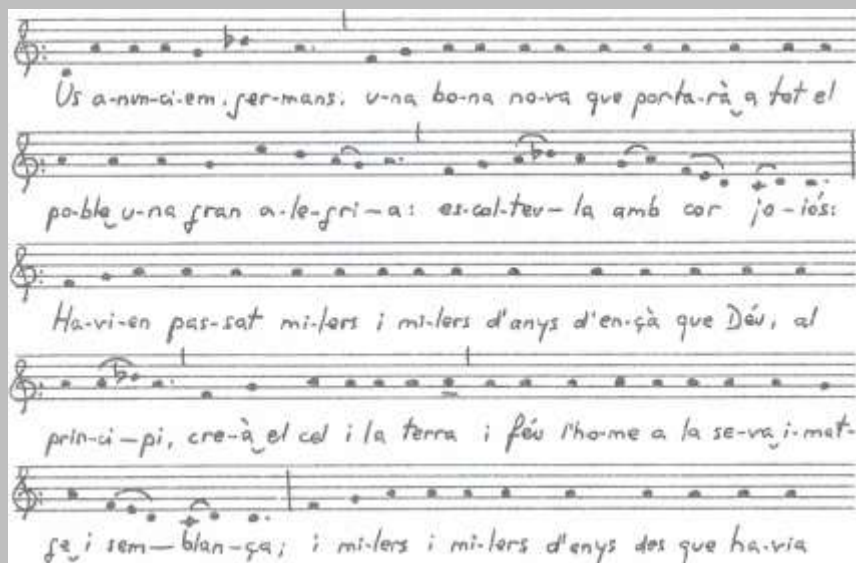 Us a-nun-ci-em, ger-mans, u-na bo-na no-va que por-ta-rà a tot el
po-ble u-na gran a-le-gri-a: es-col-teu-la amb cor jo-iós:
Ha-vi-en pas-sat mi-lers i mi-lers d'anys d'en-çà que Déu, al
prin-ci-pi, cre-à el cel i la terra i féu l'ho-me a la se-va i-mat-
ge i sem-blan-ça; i mi-lers i mi-lers d'anys des que ha-via